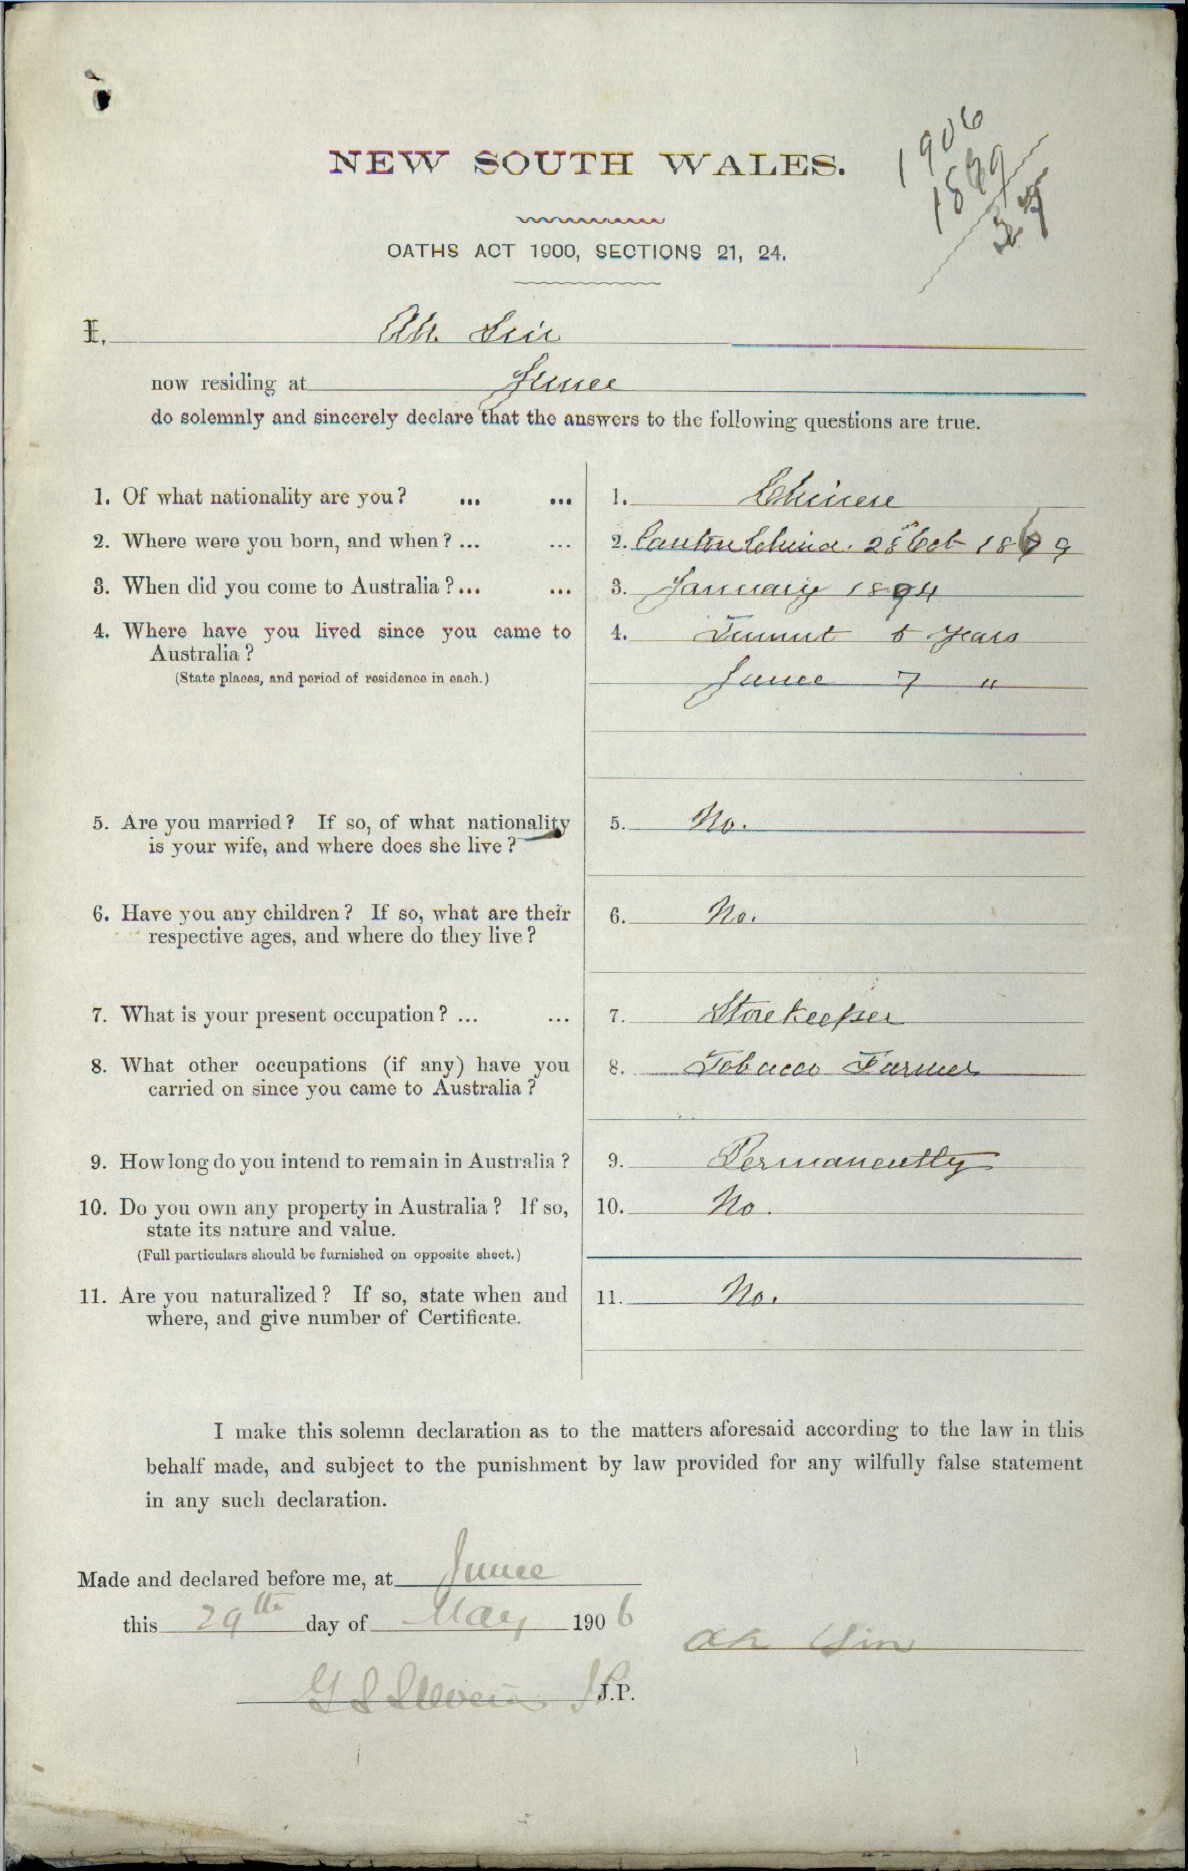 NEW SOUTH WALES.
1906
OATHS ACT 1900, SECTIONS 21, 24.
I, Ah Sin
now residing at Junee
do solemnly and sincerely declare that the answers to the following questions are true.
1. Of what nationality are you? ... ... 1. Chinese
2. Where were you born, and when? ... ... 2. Canton China. 28th Oct 1869
3. When did you come to Australia? ... ... 3. January 1894
4. Where have you lived since you came to 4. Tumut 5 Years
Australia?
(State places, and period of residence in each.) Junee 7 "
5. Are you married? If so, of what nationality 5. No.
is your wife, and where does she live?
6. Have you any children? If so, what are their 6. No.
respective ages, and where do they live?
7. What is your present occupation? ... ... 7. Storekeeper
8. What other occupations (if any) have you 8. Tobacco Farmer
carried on since you came to Australia?
9. How long do you intend to remain in Australia? 9. Permanently
10. Do you own any property in Australia? If so, 10. No.
state its nature and value.
(Full particulars should be furnished on opposite sheet.)
11. Are you naturalized? If so, state when and 11. No.
where, and give number of Certificate.
I make this solemn declaration as to the matters aforesaid according to the law in this
behalf made, and subject to the punishment by law provided for any wilfully false statement
in any such declaration.
Made and declared before me, at Junee
this 29th day of May 1906
Ah Sin
J.P.